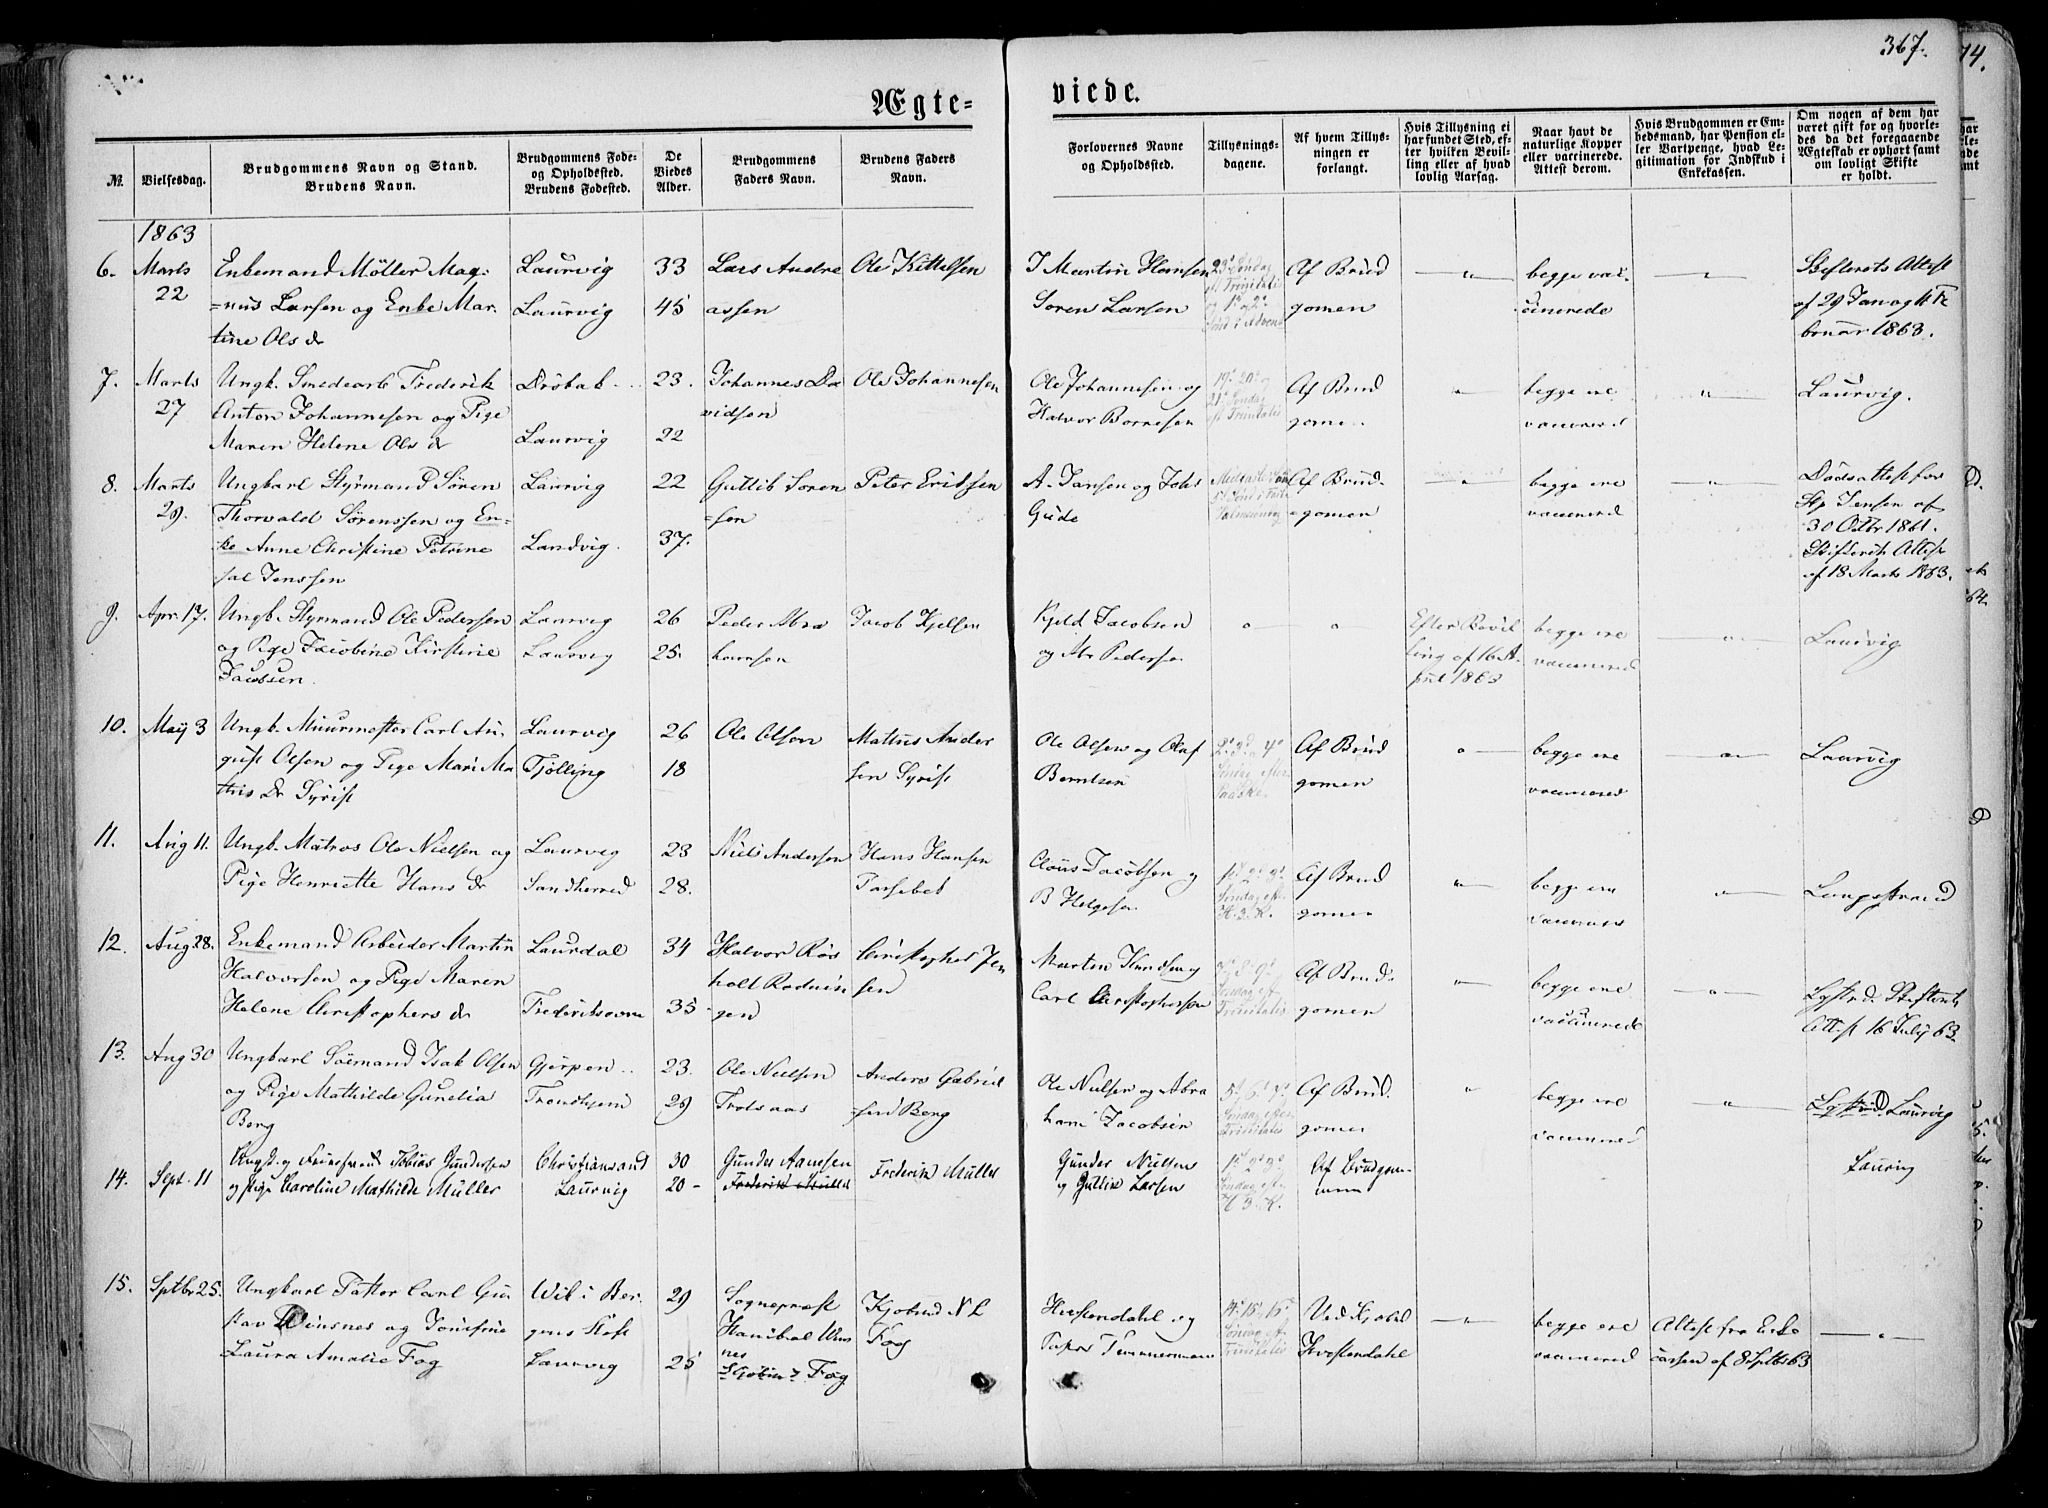 367.
Ægte-
viede.
№.
Vielsesdag.
Brudgommens Navn og Stand.
Brudens Navn.
Brudgommens Føde-
og Opholdssted.
Brudens Fødested.
De
Viedes
Alder.
Brudgommens
Faders Navn.
Brudens Faders
Navn.
Forlovernes Navne
og Opholdssted.
Tillysnings-
dagene.
Af hvem Tillys-
ningen er
forlangt.
Hvis Tillysning ei
har fundet Sted, ef-
ter hvilken Bevil-
ling eller af hvad
lovlig Aarsag.
Naar havt de
naturlige Kopper
eller vaccinerede.
Attest derom.
Hvis Brudgommen er Em-
bedsmand, har Pension el-
ler Vartpenge, hvad Le-
gitimation for Indskud i
Enkekassen.
Om nogen af dem har
været gift før og hvorle-
des da det foregaaende
Ægteskab er ophørt samt
om lovligt Skifte
er holdt.
1863
6. Marts 22
Enkemand Möller Mag-
nus Larsen og Enke Mar-
tine Ols dr
Laurvig
Laurvig
33
45
Lars Andre
assen
Ole Kittelsen
I Martin Hansen
Soren Larsen
23' Søndag
eft Trinitatis
og 1' og 2'
Sönd i Advent
Af Brud
gomen
begge vac-
cinerede
Skifterets Attest
af 29 Jan og 11 Fe
bruar 1863.
7. Marts 27
Ungk. Smedearb Frederik
Anton Johannesen og Pige
Maren Helene Ols dr
Dröbak
Laurvig
23.
22
Johannes Da
vidsen
Ole Johannesen
Ole Johannesen og
Halvor Bornesen
19' 20' og
21' Søndag
eft Trinitatis
Af Brud
gomen
begge ere
vaccinered
Laurvig.
8. Marts 29
Ungkarl Styrmand Sören
Thorvald Sörenssen og En-
ke Anne Christine Petrine
Jenssen
Laurvig
Landvig.
22
37.
Gullib Soren
sen
Peter Eriksen
A. Jansen og Johs
Gude
Af Brud-
gomen
begge ere
vaccinered
Dödsattest for
Jensen af
30 Octbr 1861.
Skifterets Attest
af 18 Marts 1863.
9. Apr. 17.
Ungk. Styrmand Ole Pedersen
og Pige Jacobine Kirstine
Jacobsen.
Laurvig
Laurvig
26
25.
Peder Abra
hamsen
Jacob Kjelsen
Kjeld Jacobsen
og Abr Pedersen
Efter Bevil
ling af 16 A-
pril 1863
begge ere
vaccinered
Laurvig
10. May 3
Ungk. Muurmester Carl Au-
gust Olsen og Pige Mari Ma
this Dr Syrist
Laurvig
Tjölling
26
18
Ole Olsen
Mathis Ander
sen Syrist
Ole Olsen og Olaf
Berntsen
2' 3' og 4'
Søndag efter
Paaske.
Af Brud
gomen
begge ere
vaccinered
Laurvig
11. Aug 11.
Ungk. Matros Ole Nielsen og
Pige Henriette Hans dr
Laurvig
Sandherred
23
28.
Niels Andersen
Hans Hansen
Claus Jacobsen og
B Helgesen
1' 2' 3'
Søndag eft
H. 3. K.
Af Brud
gomen
begge ere
Langestrand
12. Aug 28.
Enkemand Arbeider Martin
Halvorsen og Pige Maren
Helene Christophers dr
Laurdal
Frederiksværn
34
35
Halvor Rös
holt
gen
Christopher Jen
sen
Morten Knudsen og
Carl Christophersen
7' 8' 9'
Søndag eft
Trinitatis
Af Brud-
gomen
begge ere
vaccinerede
Lgstrd. Skifterets
Attest 16 July 63.
13. Aug 30
Ungkarl Sömand Isak Olsen
og Pige Mathilde Gunelia
Berg
Gjerpen
Trondhjem
23.
29
Ole Nielsen
Anders Gabriel
sen Berg
Ole Nielsen og Abra
ham Jacobsen
5' 6' 7'
Søndag efter
Trinitatis
Af Brud.
gomen
begge ere
vaccinered
Lgstrd. Laurvig
14. Sept. 11
Tobias Gundersen
og Pige Caroline Mathilde Müller
Christiansand
Laurvig
30
20 -
Gunder Aanesen
Frederik Müller
Frederik Müller
Gunder Nielsen
og Gullik Larsen
1' 2' 3'
Søndag eft-
H 3. K.
Af Brudgom-
men
Laurvig
15. Sptbr 25.
Ungkarl Carl Gu
stav Winsnes og Josefine
Laura Amalie Fog
Wik i Ber-
gens Stift
Laurvig
29
25
Sognepræst
Hanibal Wins
nes
Kjøbm. Fog
Kjøbmd N L
Fog
Hvistendahl og
14' 15' 15'
Søndag
Trinitatis
Hvistendahl
begge ere
vaccinered
Attest fra Enke
cassen af 8 Sptbr 63